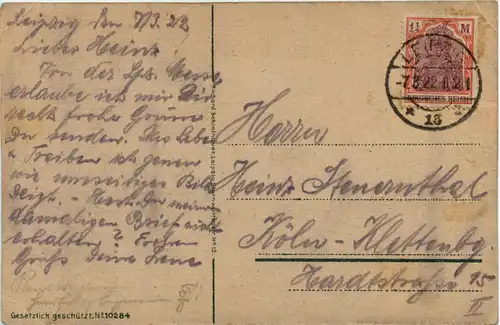 Leipzig den 7/3.22.
Lieber Heinz
Von der Lpz. Messe
erlaube ich mir Dir
recht frohe Grüsse
zu senden. Das Leben
u. Treiben ist genau
wie umseitiges Bild
zeigt. - Hast Du meinen
damaligen Brief nicht
erhalten? Freundl.
Grüße Deine Irene
Gesetzlich geschützt. No 10284
1¼ M
DEUTSCHES REICH
LEIPZIG
13
Herrn
Heinz Sternenthal
Köln-Klettenbg
Hardtstraße 15
II